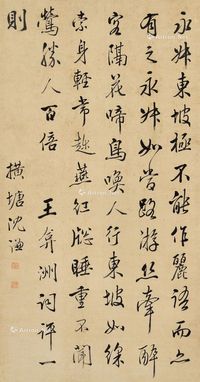 永叔東坡極不能作麗語而亦
有之永叔如當路游絲牽醉
客隔花啼鳥喚人行東坡如綵
索身輕常趁燕紅窗睡重不聞
鶯勝人百倍 王弇洲詞評一
則 橫塘沈